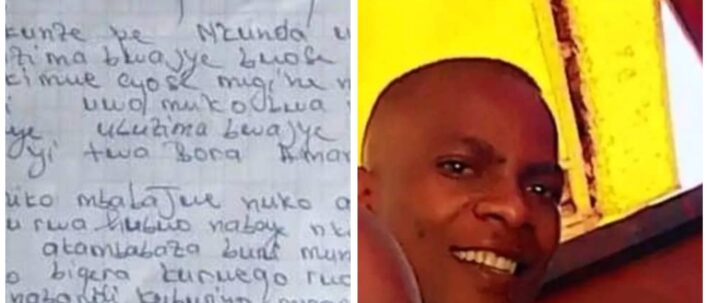 kunze pe Nkunda u
zima bwajye bwose
kimwe cyose migihe n
i uwo mukobwa
ye ubuzima bwajye
yi twa Bora Amar
iko mbabajwe nuko a
u rwa hubwo nabaye nk
akambabaza buri mun
o bigera kurwego rwo